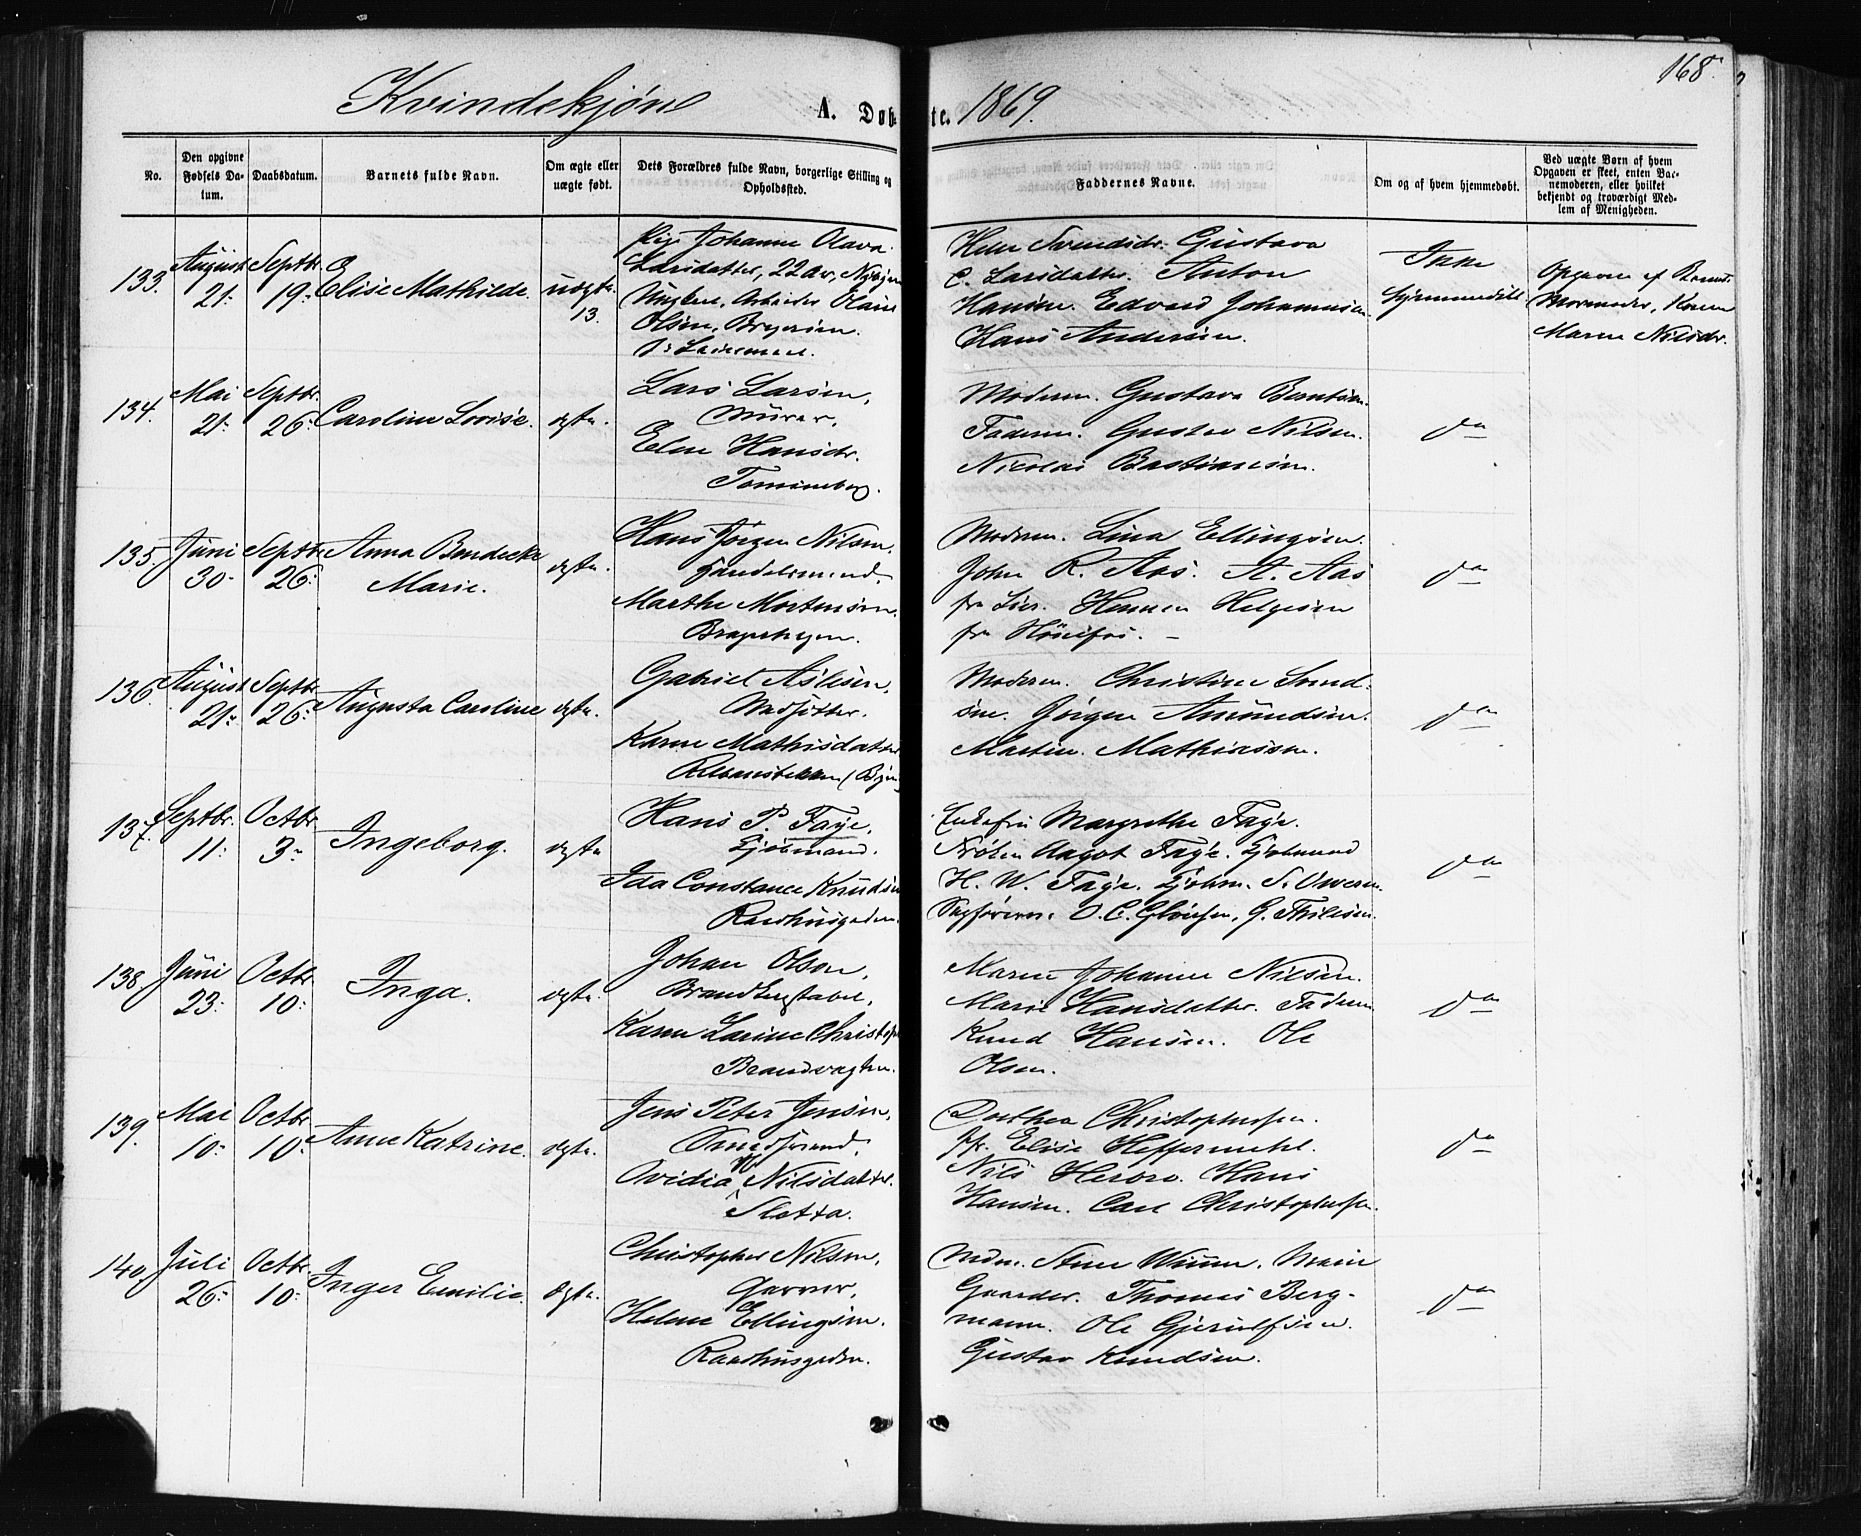 168.
Kvindekjøn A. Døbte. 1869.
No.
Den opgivne Fødsels Datum.
Daabsdatum.
Barnets fulde Navn.
Om ægte eller uægte født.
Dets Forældres fulde Navn, borgerlige Stilling og Opholdssted.
Faddernes Navne.
Om og af hvem hjemmedøbt.
Ved uægte Børn af hvem Opgaven er skeet, enten Barnemoderen, eller hvilket bekjendt og troværdigt Medlem af Menigheden.
133. August 21. Septbr. 19. Elise Mathilde. uægte. 13.
Pige Johanne Olava
Larsdatter, 22 Aar,
Ungkarl, Arbeider Olaus
Olsen,
Gustava
C. Larsdatter. Anton
Hansen. Edvard Johannesen.
Hans Andersen.
Ikke
hjemmedøbt.
Opgaven af Barnets
Mormoder, Karen
Maren Nilsdr.
134. Mai 21. Septbr. 26. Caroline Lovise. ægte.
Lars Larsen,
Murer,
Elen Hansdr.
Moderen. Gustava Berntsen.
Faderen. Gustav Nilsen.
Nicolai Bastiansen.
do
135. Juni 30. Septbr. 26. Anna Bendicte
Marie. ægte.
Hans Jørgen Nilsen.
Handelsmand,
Marthe Mortensen.
Moderen. Lina Ellingsen.
John R. Aas. A. Aas
fra Lier. Helgesen
fra Hönefos.
do
136. August 21. Septbr. 26. Augusta Caroline ægte.
Gabriel Aslesen,
Karen Mathisdatter
Moderen. Christine Svend-
sen. Jörgen Amundsen.
Martin Mathiasen.
do
137. Septbr. 11. Octbr. 3. Ingeborg. ægte
Hans P. Faye,
Kjøbmand.
Ida Constance Knudsen
Raadhusgaden.
Enkefru Margrethe Faye.
Frøken Aagot Faye. Kjøbmand
H. W. Faye. Kjøbm.
Sagfører
do
138. Juni 23. Octbr. 10. Inga. ægte.
Johan Olsen,
Brandkonstabel,
Karen Larine Christoph
Brandvagten.
Maren Johanne Nilsen.
Marie Hansdatter. Faderen
Knud Hansen. Ole
Olsen.
do
139. Mai 10. Octbr. 10. Anne Katrine. ægte.
Jens Peter Jensen,
Ovidia M Nilsdatter.
Sletta.
Dorthea Christophersen.
Elise Heffermehl.
Nils Hans
Hansen. Carl Christophersen.
do
140. Juli 26. Octbr. 10. Inger Emilie. ægte.
Christopher Nilsen,
Garver,
Helene Ellingsen.
Raadhusgaden.
Gaarder. Thomas Berg-
mann. Ole Gjerulfsen.
Gustav Knudsen.
do